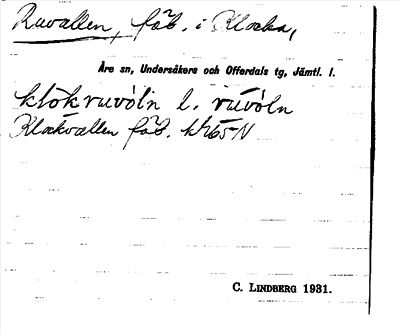 Ruvallen, fäb. i Klocka,
Åre sn, Undersåkers och Offerdals tg, Jämtl. l.
klòkruvóln l. ruvóln
Klockvallen fäb. kr65N
C. LINDBERG 1931.